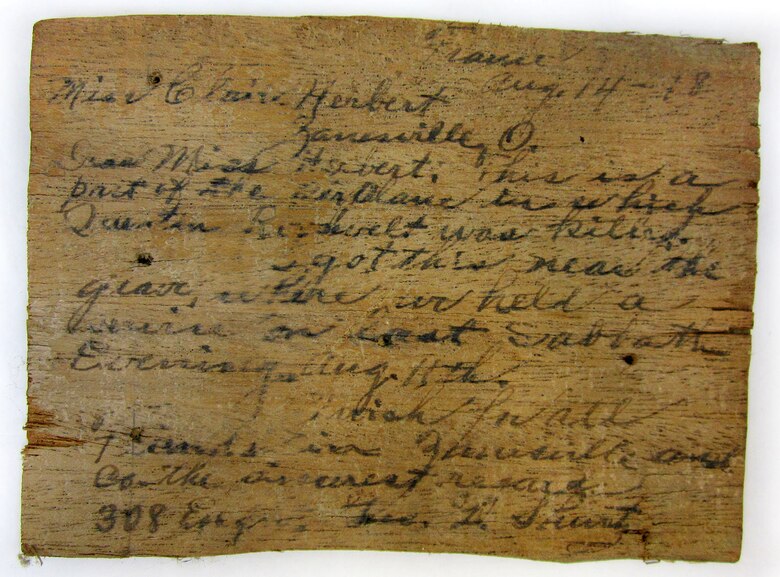 France
Aug. 14 - 18
Miss Clair Herbert
Zanesville, O.
Dear Miss Herbert: This is a
part of the airplane in which
Quentin Roosevelt was killed.
I got this near the
grave, where we held a
service on Last Sabbath
Evening, Aug. 11th.
I wish for all
friends in Zanesville and
Co. the sincerest regards
308 Eng.